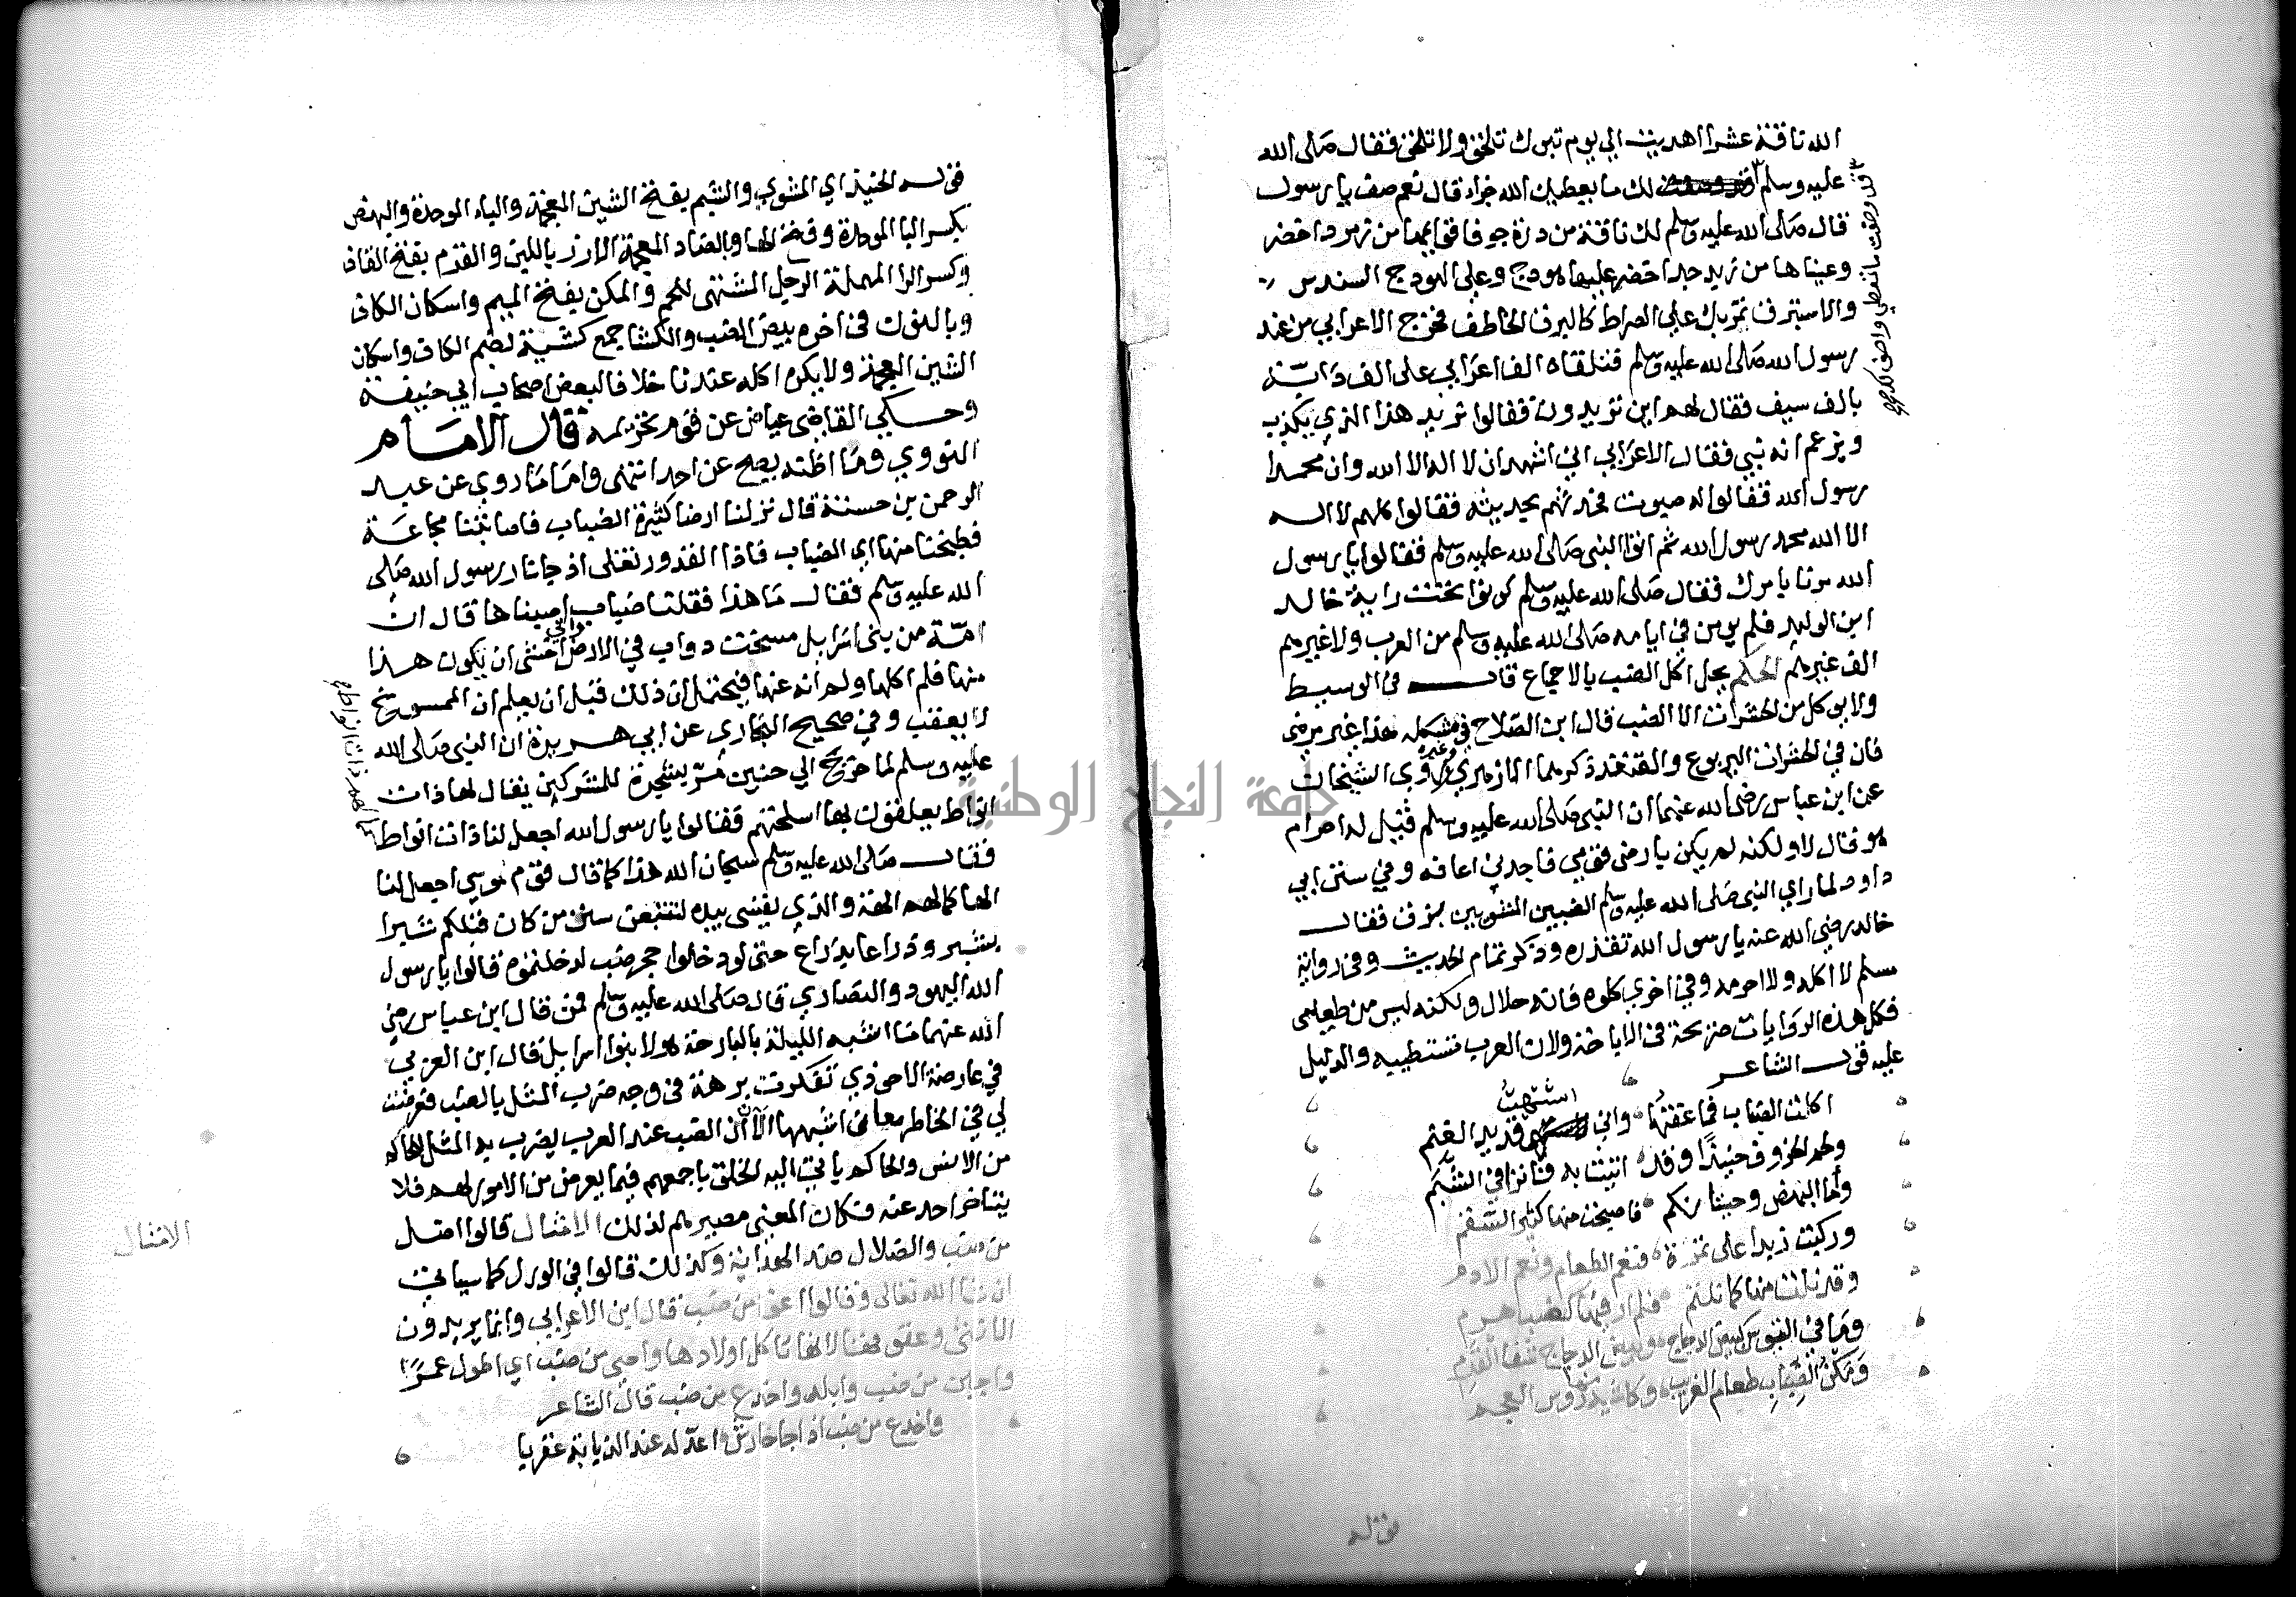 الله ناقة عشرا اهديت الي يوم تبوك تلحق ولا تلحق فقال صلى الله
عليه وسلم لك ما يعطيك الله جزاء قال نعم صف يا رسول
قد وصفت ما تعطي واصف لك
قال صلى الله عليه وسلم لك ناقة من درة جوفا قوايمها من زمرد اخضر
وعيناها من زبرجد اخضر عليها هودج وعلى الهودج السندس
والاستبرق تمر بك على الصراط كالبرق الخاطف فخرج الاعرابي من عند
رسول الله صلى الله عليه وسلم فتلقاه الف اعرابي على الف دابة
بالف سيف فقال لهم اين تريدون فقالوا نريد هذا الذي يكذب
ويزعم انه نبي فقال الاعرابي اني اشهد ان لا اله الا الله وان محمدا
رسول الله فقالوا له صبوت فحدثهم بحديثه فقالوا كلهم لا اله
الا الله محمد رسول الله ثم اتوا النبي صلى الله عليه وسلم فقالوا يا رسول
الله مرنا بامرك فقال صلى الله عليه وسلم كونوا تحت راية خالد
ابن الوليد فلم يومن في ايامه صلى الله عليه وسلم من العرب ولا غيرهم
الف غيرهم الحكم يحل اكل الضب بالاجماع قال في الوسيط
ولا يوكل من الحشرات الا الضب قال ابن الصلاح في مشكله هذا غير مرضي
فان في الحشرات اليربوع والقنفذ ذكرهما الازهري وغيره وروى الشيخان
عن ابن عباس رضي الله عنهما ان النبي صلى الله عليه وسلم قيل له احرام
هو قال لا ولكنه لم يكن بارض قومي فاجدني اعافه وفي سنن ابي
داود لما راي النبي صلى الله عليه وسلم الضبين المشويين بزق فقال
خالد رضي الله عنه يا رسول الله تقذره وذكر تمام الحديث وفي رواية
مسلم لا اكله ولا احرمه وفي اخري كلوه فانه حلال ولكنه ليس من طعامي
فكل هذه الروايات صريحة في الاباحة ولان العرب تستطيبه والدليل
عليه قول الشاعر
اكلت الضباب فما عفتها واني اشتهيت قديد الغنم
ولحم الخروف حنيذا وقد اتيت به فاترا في الشبم
واما البهض وحيتانكم فاصبحت منها كثير السقم
وركبت زبدا على تمرة فنعم الطعام ونعم الادم
وقد نلت منها كما نلتم فلم ار فيها كضب هرم
وما في التيوس كبيض الدجاج وبيض الدجاج شفا القرم
ومكن الضباب طعام العريب وكاشيه منها روس العجم
قوله
قوله الحنيذ اي المشوي والشبم بفتح الشين المعجمة والباء الموحدة والبهض
بكسر البا الموحدة وفتح الها وبالضاد المعجمة الارز باللبن والقرم بفتح القاف
وكسر الرا المهملة الرجل المشتهي للحم والمكن بفتح الميم واسكان الكاف
وبالنون في اخره بيض الضب والكشا جمع كشية بضم الكاف واسكان
الشين المعجمة ولا يكره اكله عندنا خلافا لبعض اصحاب ابي حنيفة
وحكي القاضي عياض عن قوم تحريمه قال الامام
النووي وما اظنه يصح عن احد انتهى واما ما روي عن عبد
الرحمن بن حسنة قال نزلنا ارضا كثيرة الضباب فاصابتنا مجاعة
فطبخنا منها اي الضباب فاذا القدور تغلى اذ جانا رسول الله صلى
الله عليه وسلم فقال ما هذا فقلنا ضباب اصبناها قال ان
امة من بني اسرائيل مسخت دواب في الارض واني اخشى ان يكون هذا
منها فلم اكلها ولم انه عنها فيحتمل ان ذلك قبل ان يعلم ان الممسوخ
لا يعقب وفي صحيح البخاري عن ابي هريرة ان النبي صلى الله
عليه وسلم لما خرج الي حنين مر بشجرة للمشركين يقال لها ذات
انواط يعلقون بها اسلحتهم فقالوا يا رسول الله اجعل لنا ذات انواط
كما لهم ذات انواط
فقال صلى الله عليه وسلم سبحان الله هذا كما قال قوم موسي اجعل لنا
الها كما لهم الهة والذي نفسي بيده لتتبعن سنن من كان قبلكم شبرا
بشبر وذراعا بذراع حتى لو دخلوا جحر ضب لدخلتموه قالوا يا رسول
الله اليهود والنصاري قال صلى الله عليه وسلم فمن قال ابن عباس رضي
الله عنهما ما اشبه الليلة بالبارحة هولا بنوا اسرايل قال ابن العربي
في عارضة الاحوذي تفكرت برهة في وجه ضرب المثل بالضب فعرضت
لي في الخاطر معاني اشبهها الان ان الضب عند العرب يضرب به المثل للحاكم
من الانس والحاكم ياتي اليه الخلق باجمعهم فيما يعرض من الامور لهم فلا
يتاخر احد عنه فكان المعنى مصيرهم لذلك الامثال قالوا اضل
الامثال
من ضب والضلال ضد الهداية وكذلك قالوا في الورل كما سياتي
ان شا الله تعالى وقالوا اعق من ضب قال ابن الاعرابي وانما يريدون
الانثى وعقوقها لانها تاكل اولادها واحيى من ضب اي اطول عمرا
واجبن من ضب وابله واخدع من ضب قال الشاعر
واخدع من ضب اذا جا حارش اعد له عند الذنابة عقربا